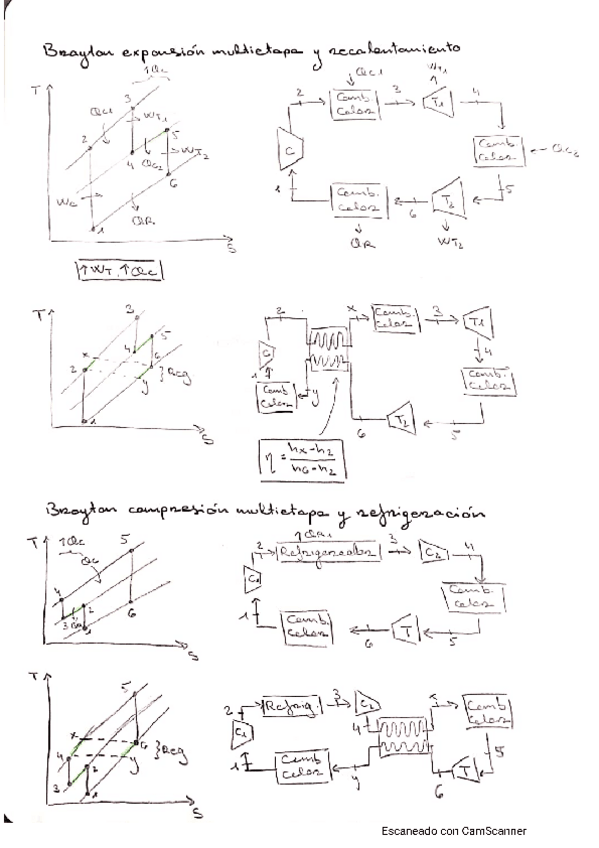 Brayton expansión multietapa y recalentamiento
↑Qc
T
3
Qc1
WT1
2
5
4
Qc2
WT2
6
Wc
QR
1
S
↑WT, ↑Qc
Qc1
WT1
2
Camb.
Calor
3
T1
4
C
Camb.
Calor
Qc2
1
Camb.
Calor
6
T2
5
QR
WT2
T
3
5
x
4
2
6
y
} Reg
1
S
2
x
Camb.
Calor
3
T1
4
C
1
Camb
Calor
y
Camb.
Calor
6
T2
5
η = hx-h2
h6-h2
Brayton compresión multietapa y refrigeración
T
↑Qc
Qc
5
4
2
3
1
6
S
↑QR1
2
Refrigerador
3
C2
4
C1
Camb.
Calor
1
Camb.
Calor
6
T
5
T
5
x
4
6
} Reg
2
y
3
1
S
2
Refrig.
3
C2
Camb
Calor
C1
4
5
1
Camb
Calor
y
6
T
Escaneado con CamScanner